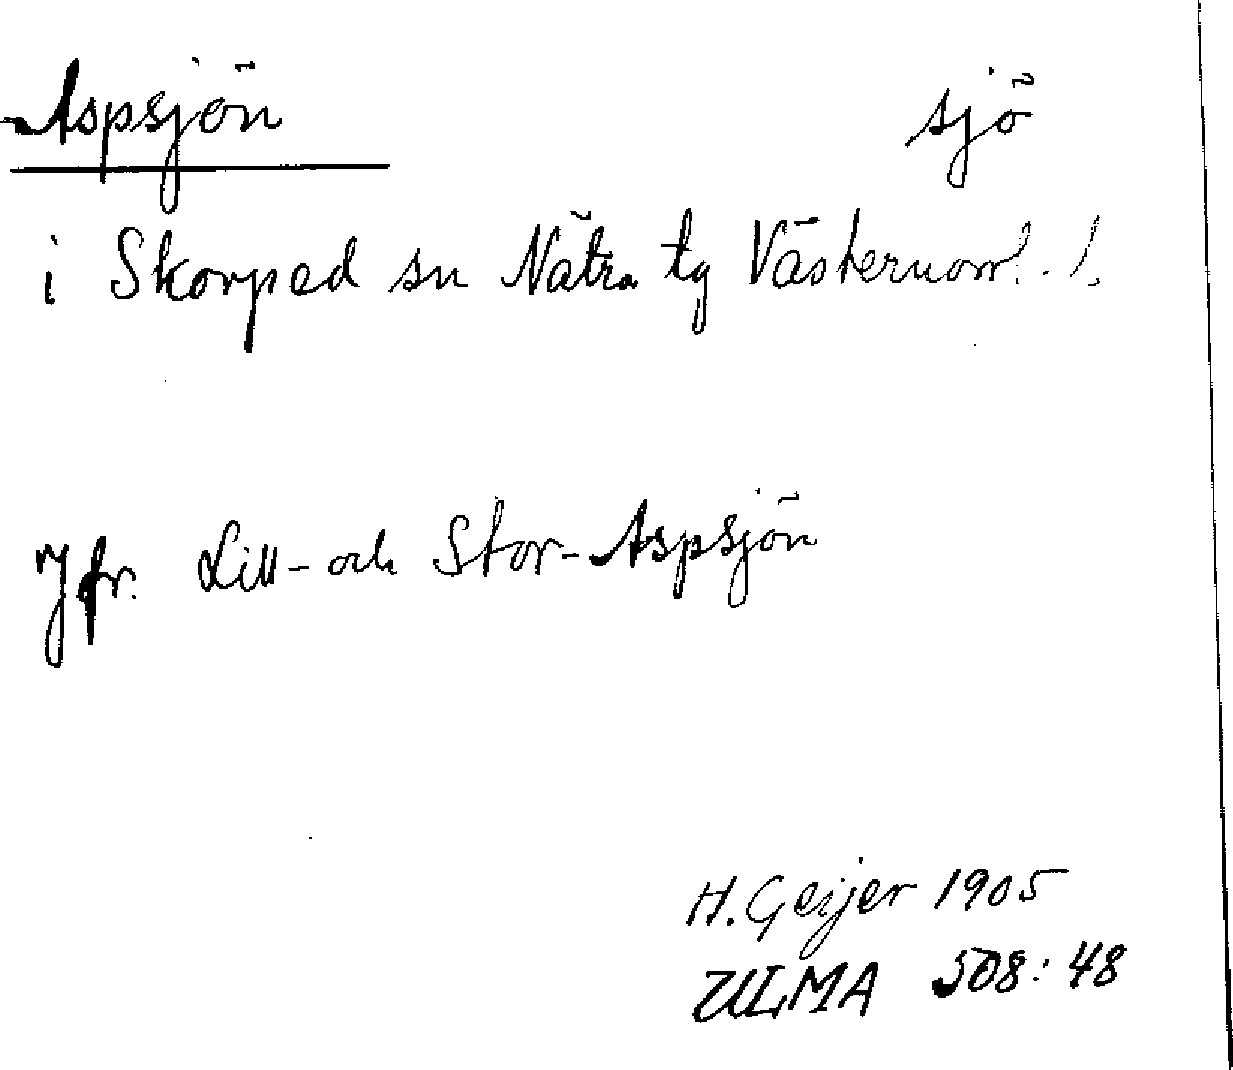 Aspsjön sjö
i Skorped sn Nätra tg Västernorrl. l.
Jfr. Lill- och Stor-Aspsjön
H. Geijer 1905
ULMA 508:48